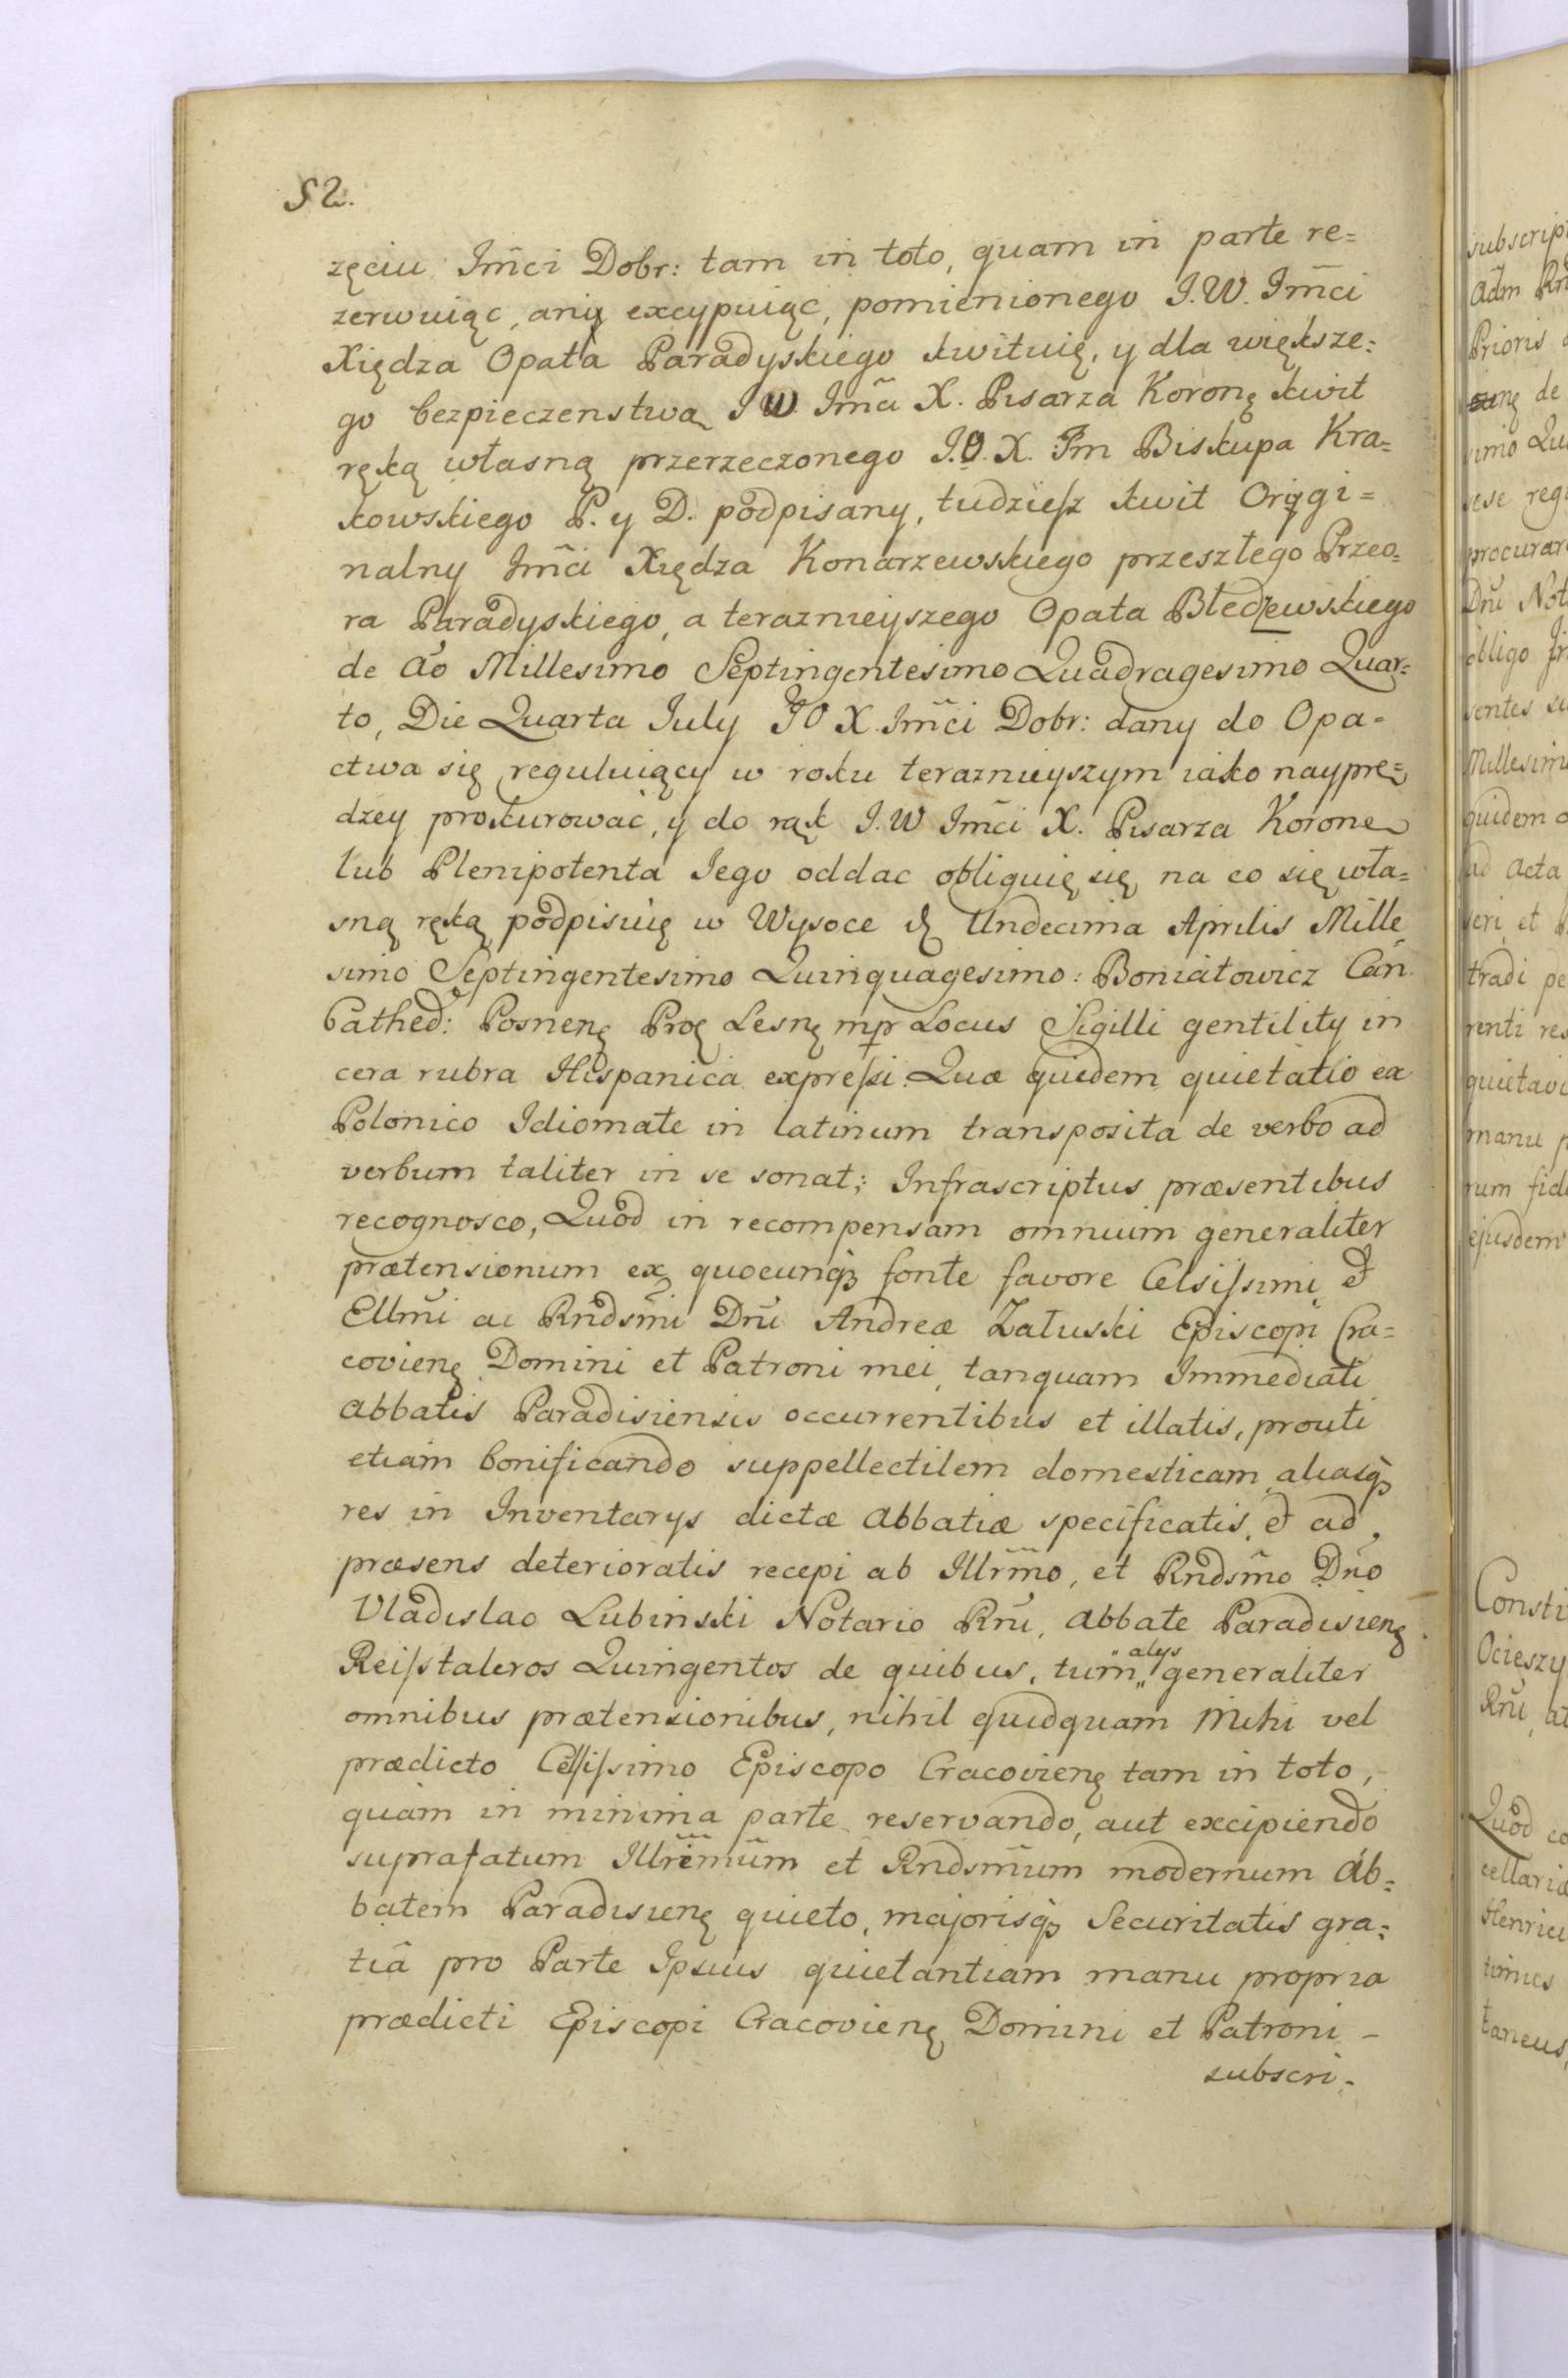 52.
zęciu Im̃ci Dobr: tam in toto, quam in parte re=
zerwuiąc, aniy excypuiąc, pomienionego J.W. Im̃ci
Xiędza Opata Paradyskiego kwituię, y dla większe=
go bezpieczenstwa J W Im̃ci X. Pisarza Koronę kwit
ręką własną przerzeczonego J.O.X. Im Biskupa Kra=
kowskiego P. y D. podpisany, tudzieſz kwit Orygi=
nalny Im̃ci Xiędza Konarzewskiego przeszłego Przeo=
ra Paradyskiego, a teraznieyszego Opata Bledzewskiego
de Ao Millesimo Septingentesimo Quadragesimo Quar=
to, Die Quarta July JO X Im̃ci Dobr: dany do Opa=
ctwa się reguluiący w roku teraznieyszym iako nayprę=
dzey prokurować, y do rąk J.W Im̃ci X. Pisarza Korone
lub Plenipotenta Jego oddac obliguię się na co się wła=
sną ręką podpisuię w Wysoce d Undecima Aprilis Mille
simo Septingentesimo Quinquagesimo: Boniatowicz Can.
Cathed: Posnenę Proę Lesnę mpr Locus Sigilli gentility in
cera rubra Hispanica expreſsi. Quæ quidem quietatio ex
Polonico Idiomate in latinum transposita de verbo ad
verbum taliter in se sonat; Infrascriptus præsentibus
recognosco, Quod in recompensam omnium generaliter
prætensionum ex quocunqȝ fonte favore Celsiſsimi et
Ellm̃i ac Rndsm̃i Dñi Andreæ Załuski Episcopi Cra=
covienę Domini et Patroni mei, tanquam Immediati
Abbatis Paradisiensis occurrentibus et illatis, prouti
etiam bonificando suppellectilem domesticam aliasqȝ
res in Inventarys dictæ Abbatiæ specificatis et ad
præsens deterioratis recepi ab Illrm̃o, et Rndsm̃o Dño
Vladislao Lubinski Notario Rñi, Abbate Paradisienę
Reiſstaleros Quingentos de quibus, tum alys generaliter
omnibus prætensionibus, nihil quidquam Mihi vel
prædicto Celſiſsimo Episcopo Cracovienę tam in toto,
quam in minima parte reservando, aut excipiendo
suprafatum Illrem̃um et Rndsm̃um modernum Ab=
batem Paradisienę quieto, majorisqȝ Securitatis gra=
tiâ pro Parte Ipsius quietantiam manu propria
prædicti Episcopi Cracovienę Domini et Patroni -
subscri-
subscrip
Adm
Prioris
de
simo
sese
procurar
Dñi Not
obligo
Millesim
quidem
ad Acta
et
tradi
renti
quietavi
manu
rum fid
ejusdem
Consti
Ocieszy
Rñi
Quod co
cellariæ
Henrici
timus
taneus,